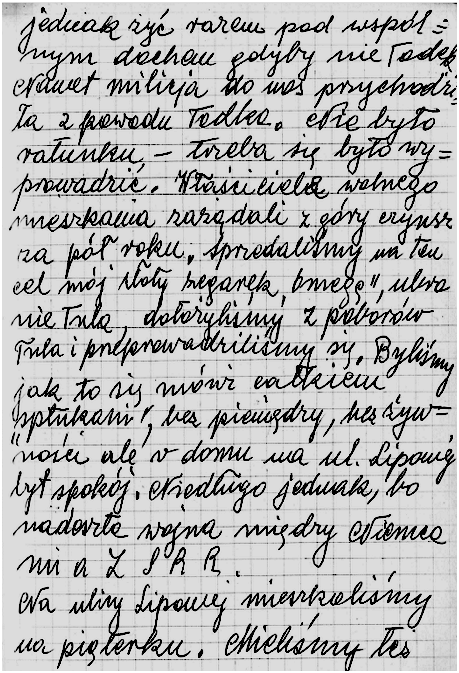 jednak żyć razem pod wspól=
nym dachem gdyby nie Tadek
Nawet milicja do nas przychodzi
ła z powodu Tadka. Nie było
ratunku, – trzeba się było wy=
prowadzić. Właściciele wolnego
mieszkania zarządali z góry czynsz
za pół roku. Sprzedaliśmy na ten
cel mój złoty zegarek „Omega", ubra
nie Tula, dołożyliśmy z poborów
Tula i przeprowadziliśmy się. Byliśmy
jak to się mówi całkiem
„spłukani", bez pieniędzy, bez żyw=
ności ale w domu na ul. Lipowej
był spokój. Niedługo jednak, bo
nadeszła wojna między Niemca
mi a Z S R R.
Na ulicy Lipowej mieszkaliśmy
na piąterku. Mieliśmy też